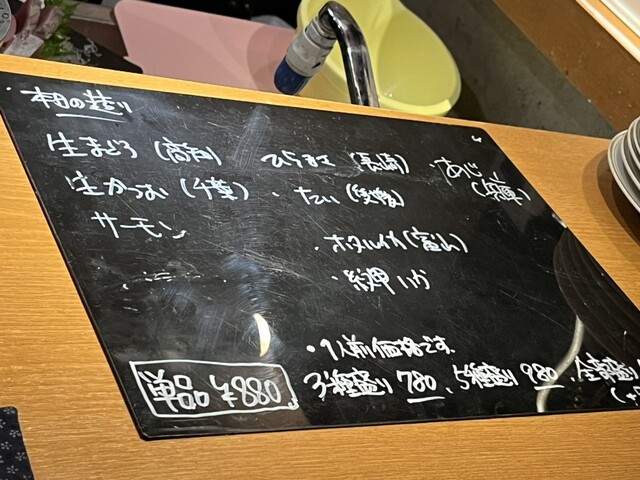 本日の造り
生まぐろ (高知)
生かつお (千葉)
サーモン
ひらまさ (長崎)
・たい (愛媛)
・ホタルイカ (富山)
・紋甲いか
・あじ (兵庫)
・1人前価格です。
単品 ¥880
3種盛り 780、5種盛り 980、全種盛り